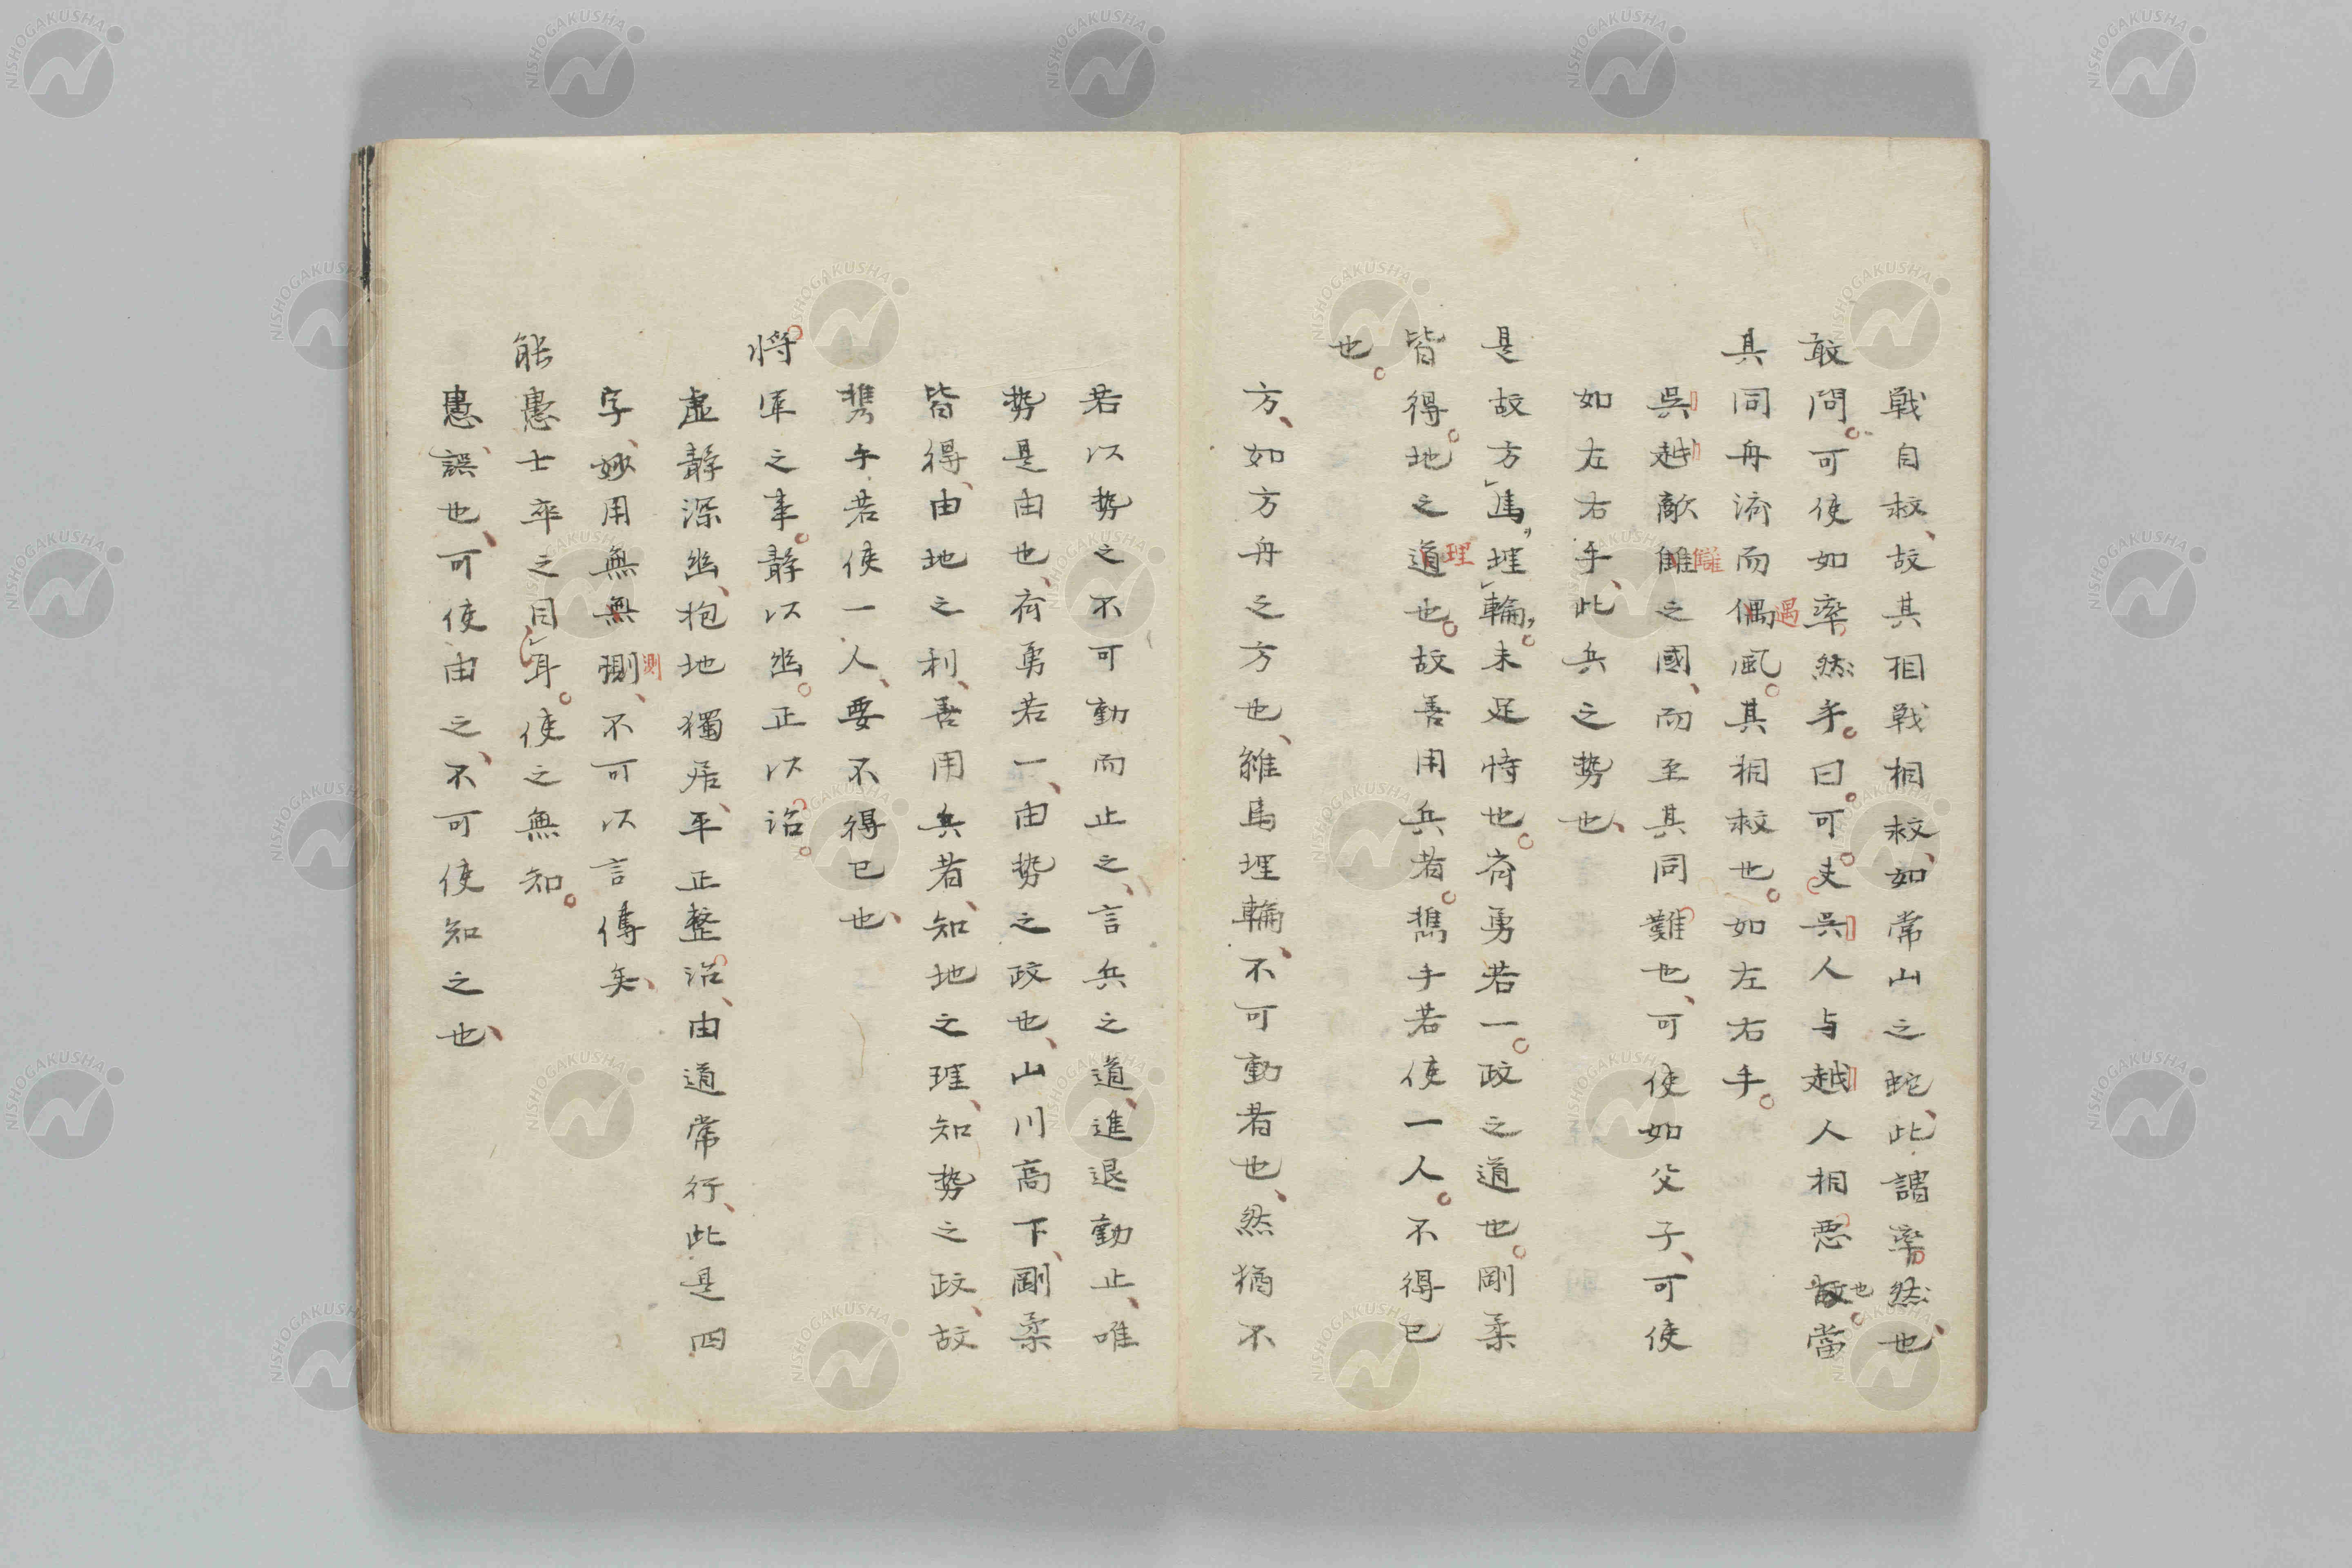 戰自救、故其相戰相救、如常山之蛇、此謂率然也、
敢問。可使如率然乎。曰。可。夫吳人与越人相惡也。當
其同舟済而偶遇風。其相救也。如左右手。
吳越敵雠讎之國、而至其同難也、可使如父子、可使
如左右手、此兵之勢也、
是故方馬埋輪。未足恃也。齊勇若一。政之道也。剛柔
皆得。地之道理也。故善用兵者。攜手若使一人。不得已
也。
方、如方舟之方也、雖馬埋輪、不可動者也、然猶不
若以勢之不可動而止之、言兵之道、進退動止、唯
勢是由也、齊勇若一、由勢之政也、山川高下、剛柔
皆得、由地之利、善用兵者、知地之理、知勢之政、故
攜手若使一人、要不得已也、
將軍之事。靜以幽。正以治。
虛靜深幽、抱地獨居、平正整治、由道常行、此是四
字、妙用無無測測、不可以言傳矣、
能愚士卒之耳目。使之無知。
愚、誤也、可使由之、不可使知之也、
NISHOGAKUSHA